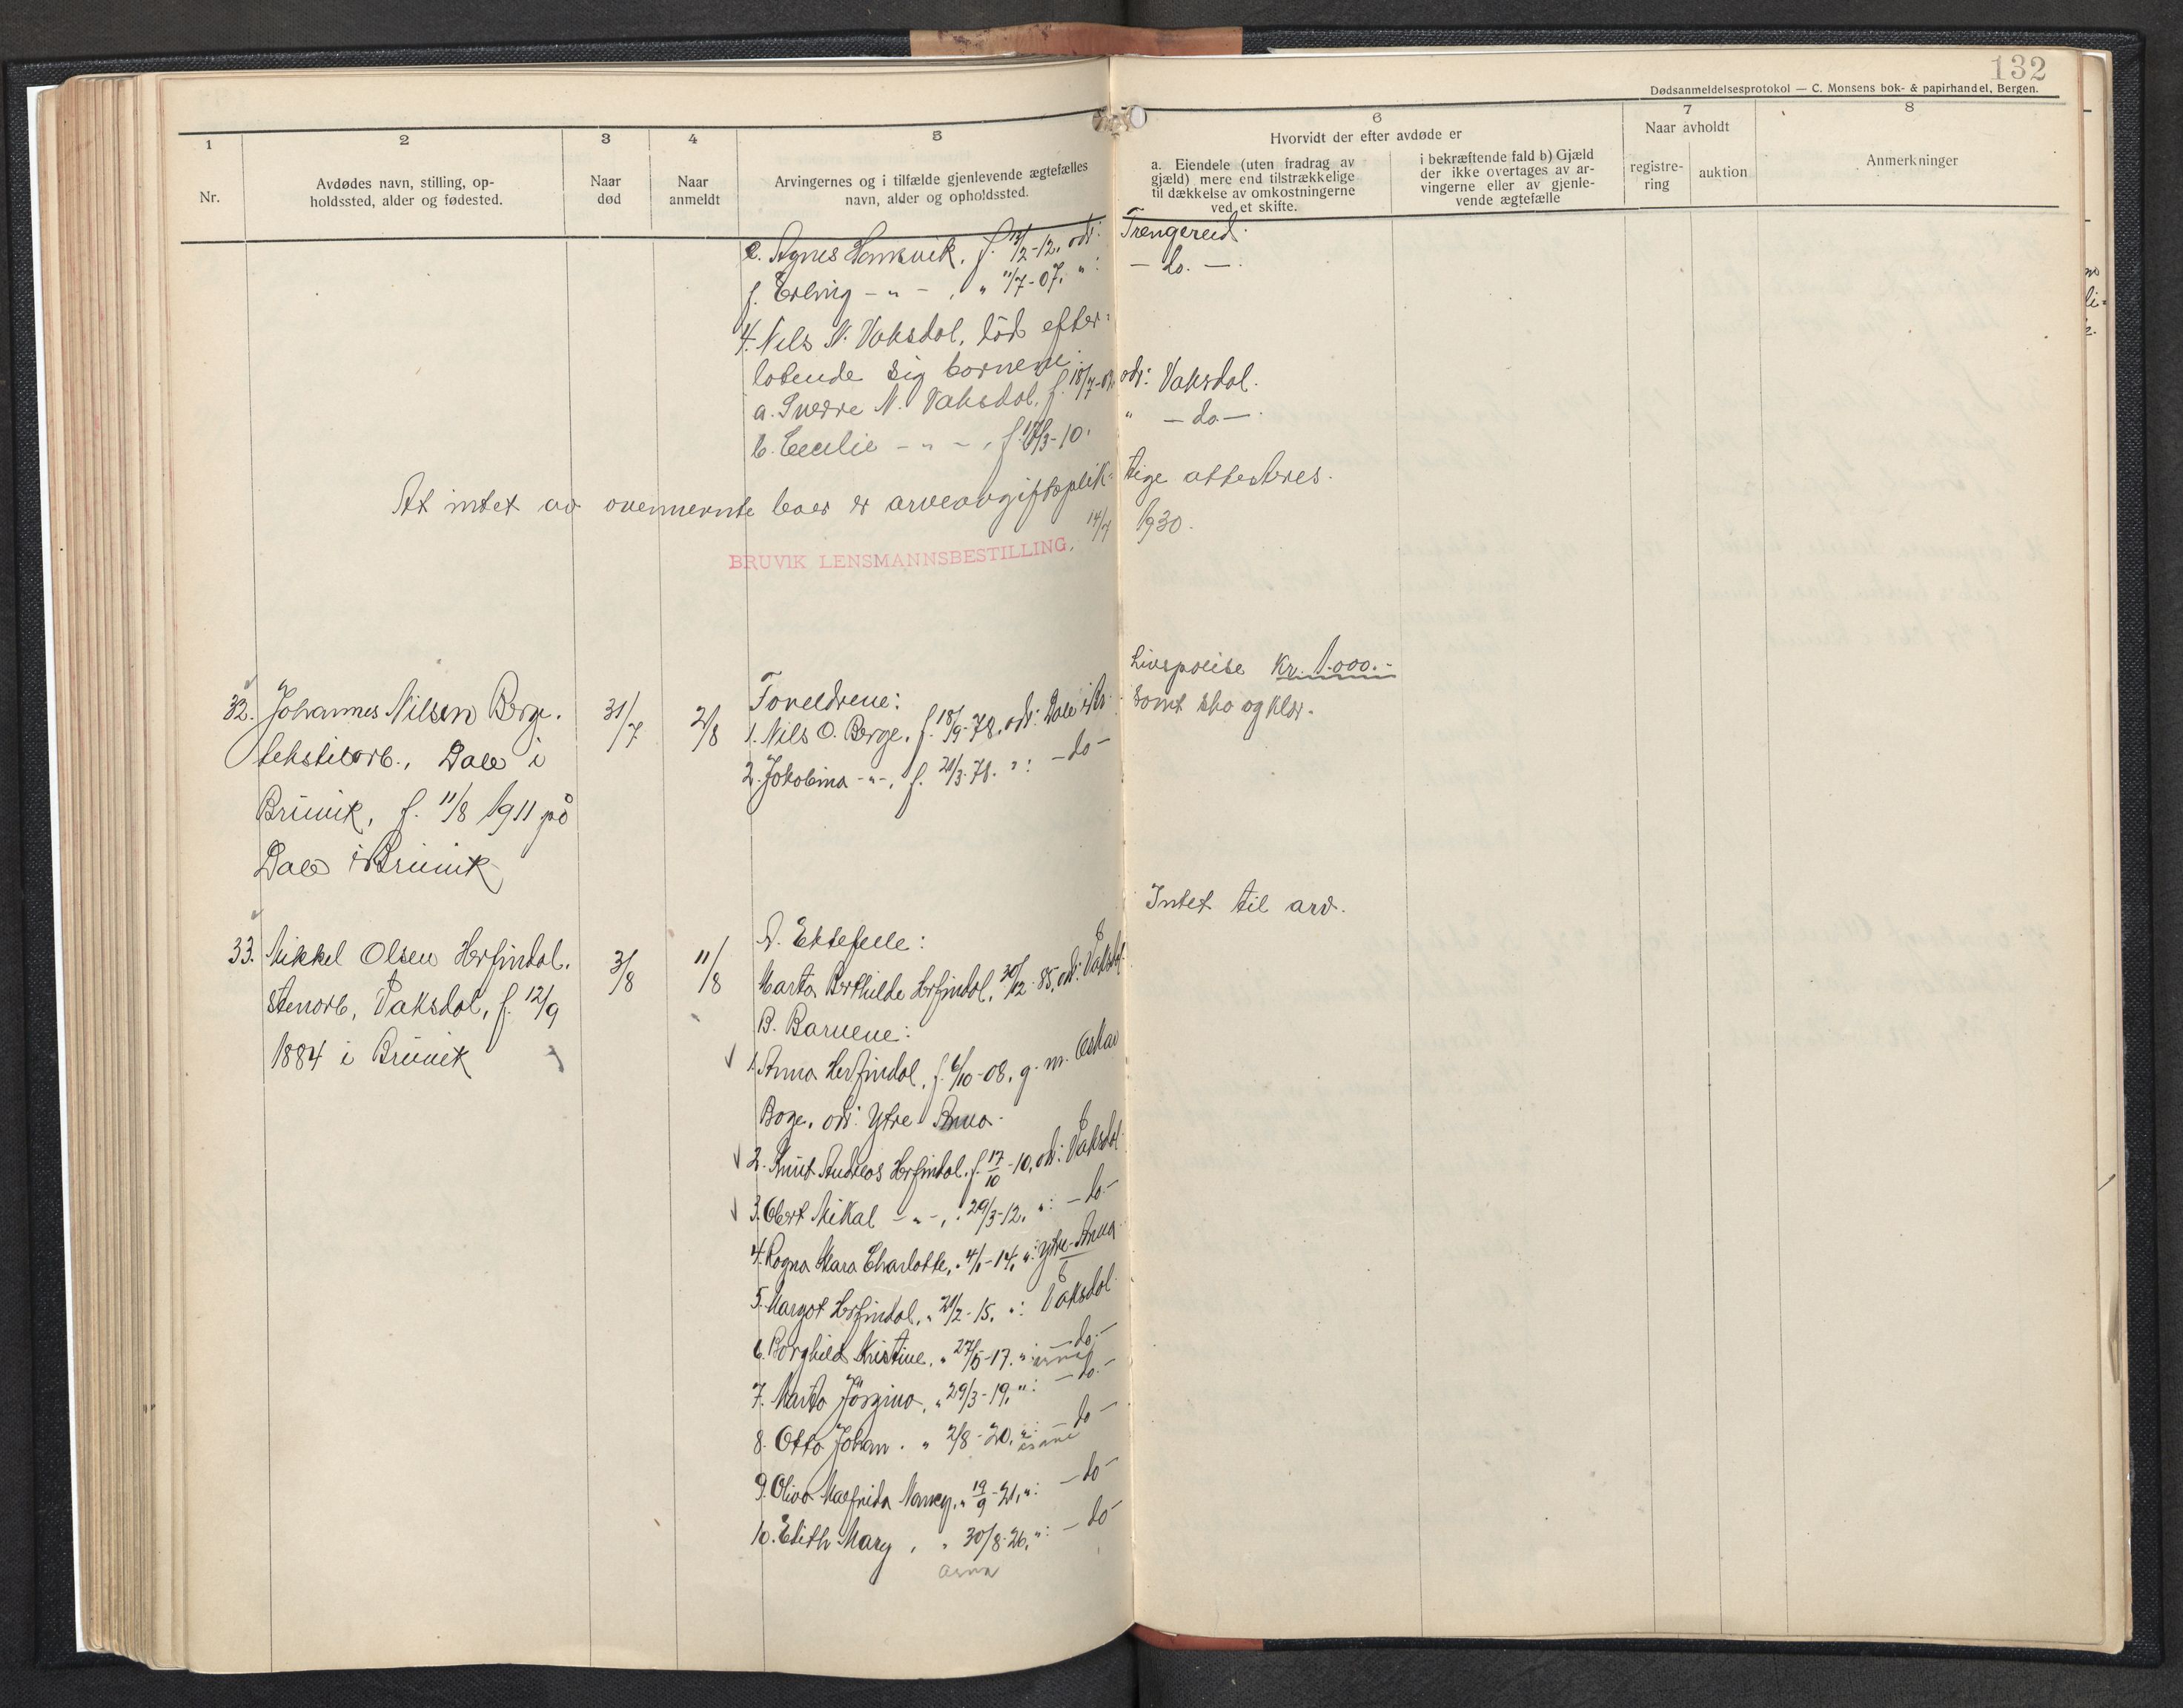 132
Dødsanmeldelsesprotokol — C. Monsens bok- & papirhandel, Bergen.
1
Nr.
2
Avdødes navn, stilling, op-
holdssted, alder og fødested.
3
Naar
død
4
Naar
anmeldt
5
Arvingernes og i tilfælde gjenlevende ægtefælles
navn, alder og opholdssted.
6
Hvorvidt der efter avdøde er
a. Eiendele (uten fradrag av
gjæld) mere end tilstrækkelige
til dækkelse av omkostningerne
ved et skifte.
i bekræftende fald b) Gjæld
der ikke overtages av ar-
vingerne eller av gjenle-
vende ægtefælle
7
Naar avholdt
registre-
ring
auktion
8
Anmerkninger
e. Agnes Hamvik, f. /2-12, adr: Trengereid.
f. Erling - " - , " 11/7-07, " : - do. -.
4. Nils N. Vaksdal, död efter-
latende sig barnene:
a. Sverre N. Vaksdal, f. 18/7-0 adr: Vaksdal.
b. Cecilie - " - , f. /3-10. " - do -.
At intet av ovennevnte boer er arveavgiftsplik- tige attesteres.
14/7 1930.
BRUVIK LENSMANNSBESTILLING,
32. Johannes Nilsen Berge.
tekstilarb., Dale i
Bruvik, f. 11/8 1911 på
Dale i Bruvik
31/7
2/8
Foreldrene:
1. Nils O. Berge, f. 18/9-78, adr: Dale i
2. Jakobina - " -, f. 21/3-78. " : - do -
Livspolise Kr. 1.000.-
samt sko og klær.
33. Mikkel Olsen Herfindal.
stenarb, Vaksdal, f. 12/9
1884 i Bruvik
3/8
11/8
A. Ektefelle:
Marta Berthilde Herfindal, 30/12-85, adr: Vaksdal
B. Barnene:
1. Anna Herfindal, f. 6/10-08, g. m. Oskar
Boge, adr: Ytre Arna.
2. Knut Andreas Herfindal, f. 17/10-10, adr: Vaksdal
3. Obert Mikal - " -, " 29/3-12, " : - do -
4. Ragna Klara Charlotte, " 4/1-14, " : Ytre-Arna
5. Margot Herfindal, " 21/2-15, " : Vaksdal
6. Borghild Kristine, " 27/5-17. " : - do -
7. Marta Jörgina, " 29/3-19, " : - do -
8. Otto Johan. " 2/8-20, " : - do -
9. Oliva Malfrida Nancy, " 19/9-21, " : - do -
10. Edith Mary, " 30/8-26, " : - do -
arna
Intet til arv.